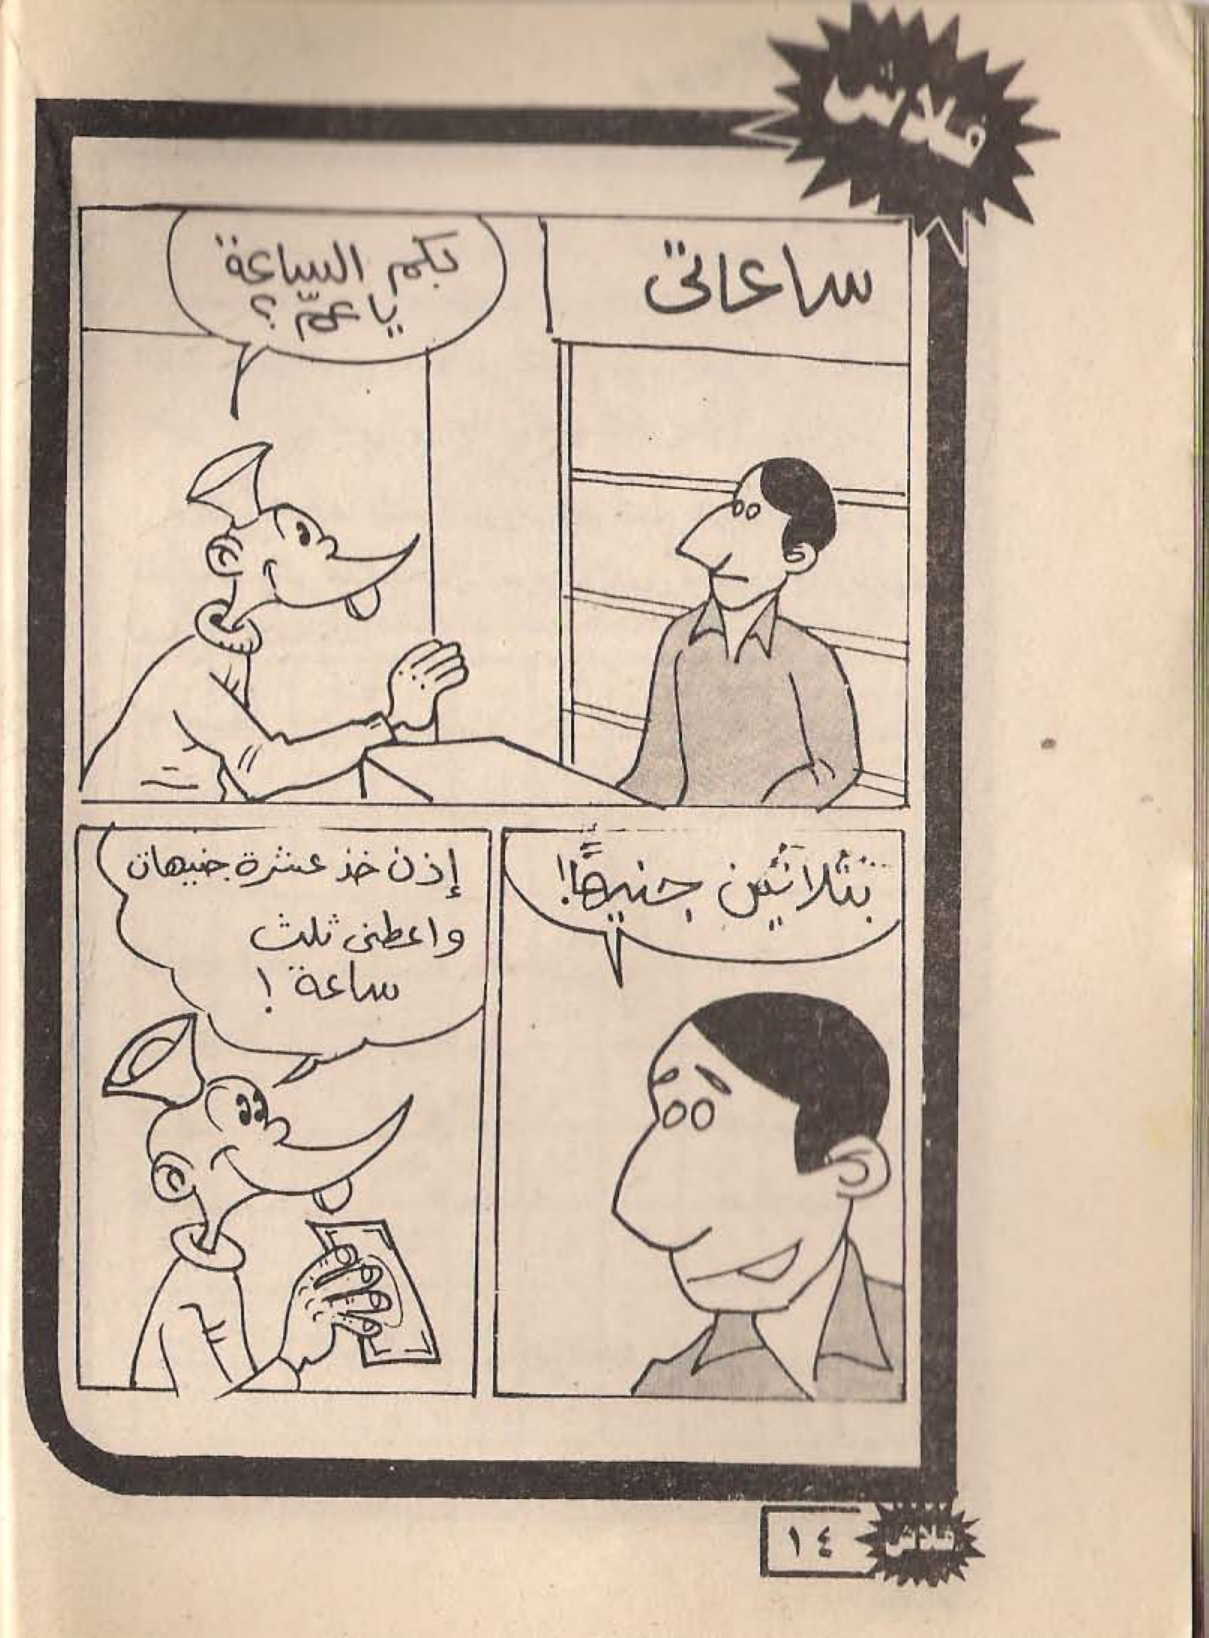 فلاش
ساعاتى
بكم الساعة
يا عمّ؟
بثلاثين جنيهًا!
إذن خذ عشرة جنيهات
واعطنى ثلث
ساعة!
١٤
فلاش